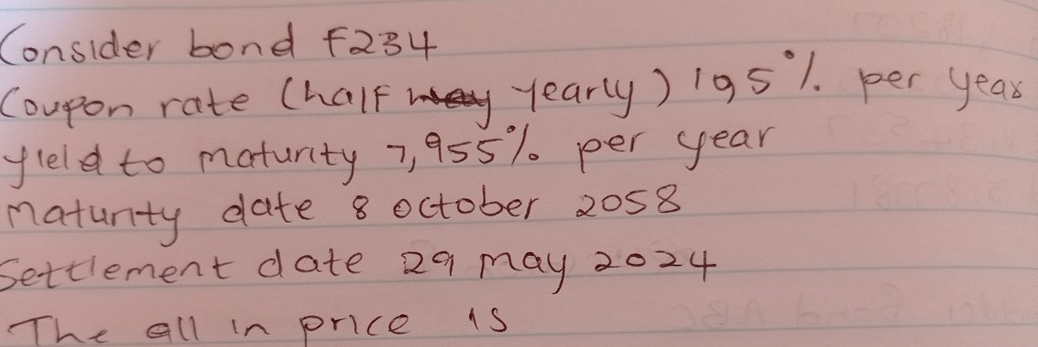 Consider bond F234
Coupon rate (half yearly) 19 5% per year
yield to maturity 7,955% per year
Maturity date 8 October 2058
Settlement date 29 may 2024
The all in price is